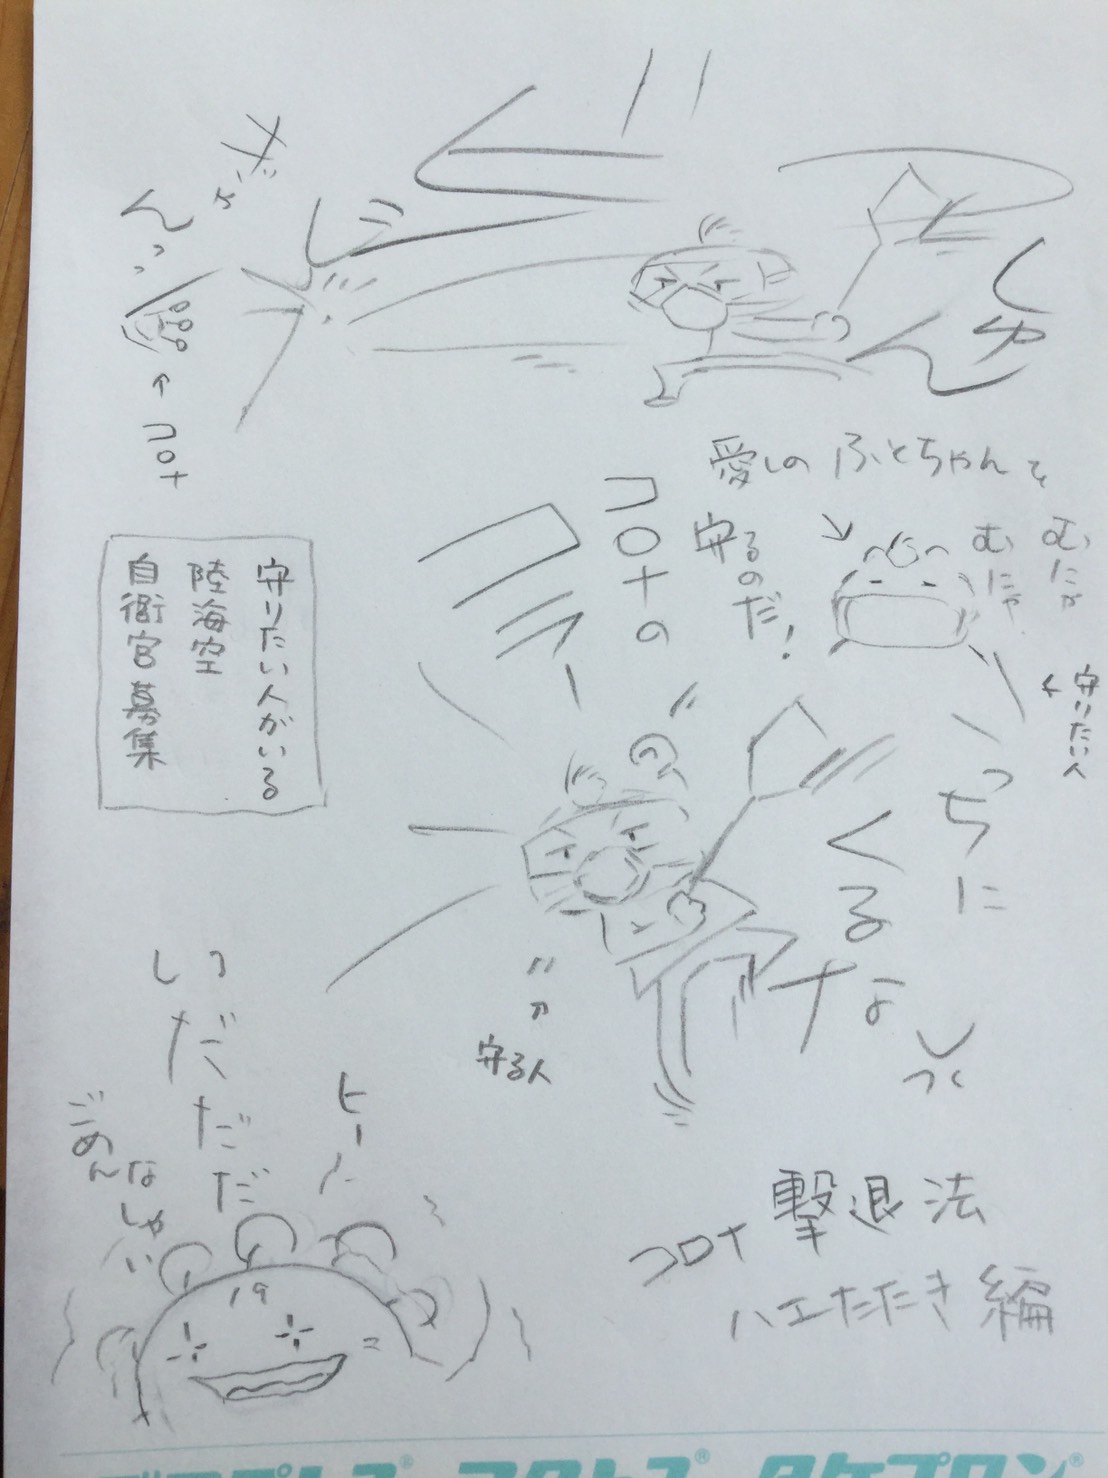 コロナ
しゅ
ん
愛しのふとちゃんを
守るのだ!
コロナの
むにゃ
むにゃ
守りたい人
守りたい人がいる
陸海空
自衛官募集
っちに
くるな
守る人
ヒー
いっ
だ
だ
だ
ごめ
んな
しゃ
い
19
コロナ撃退法
ハエたたき編